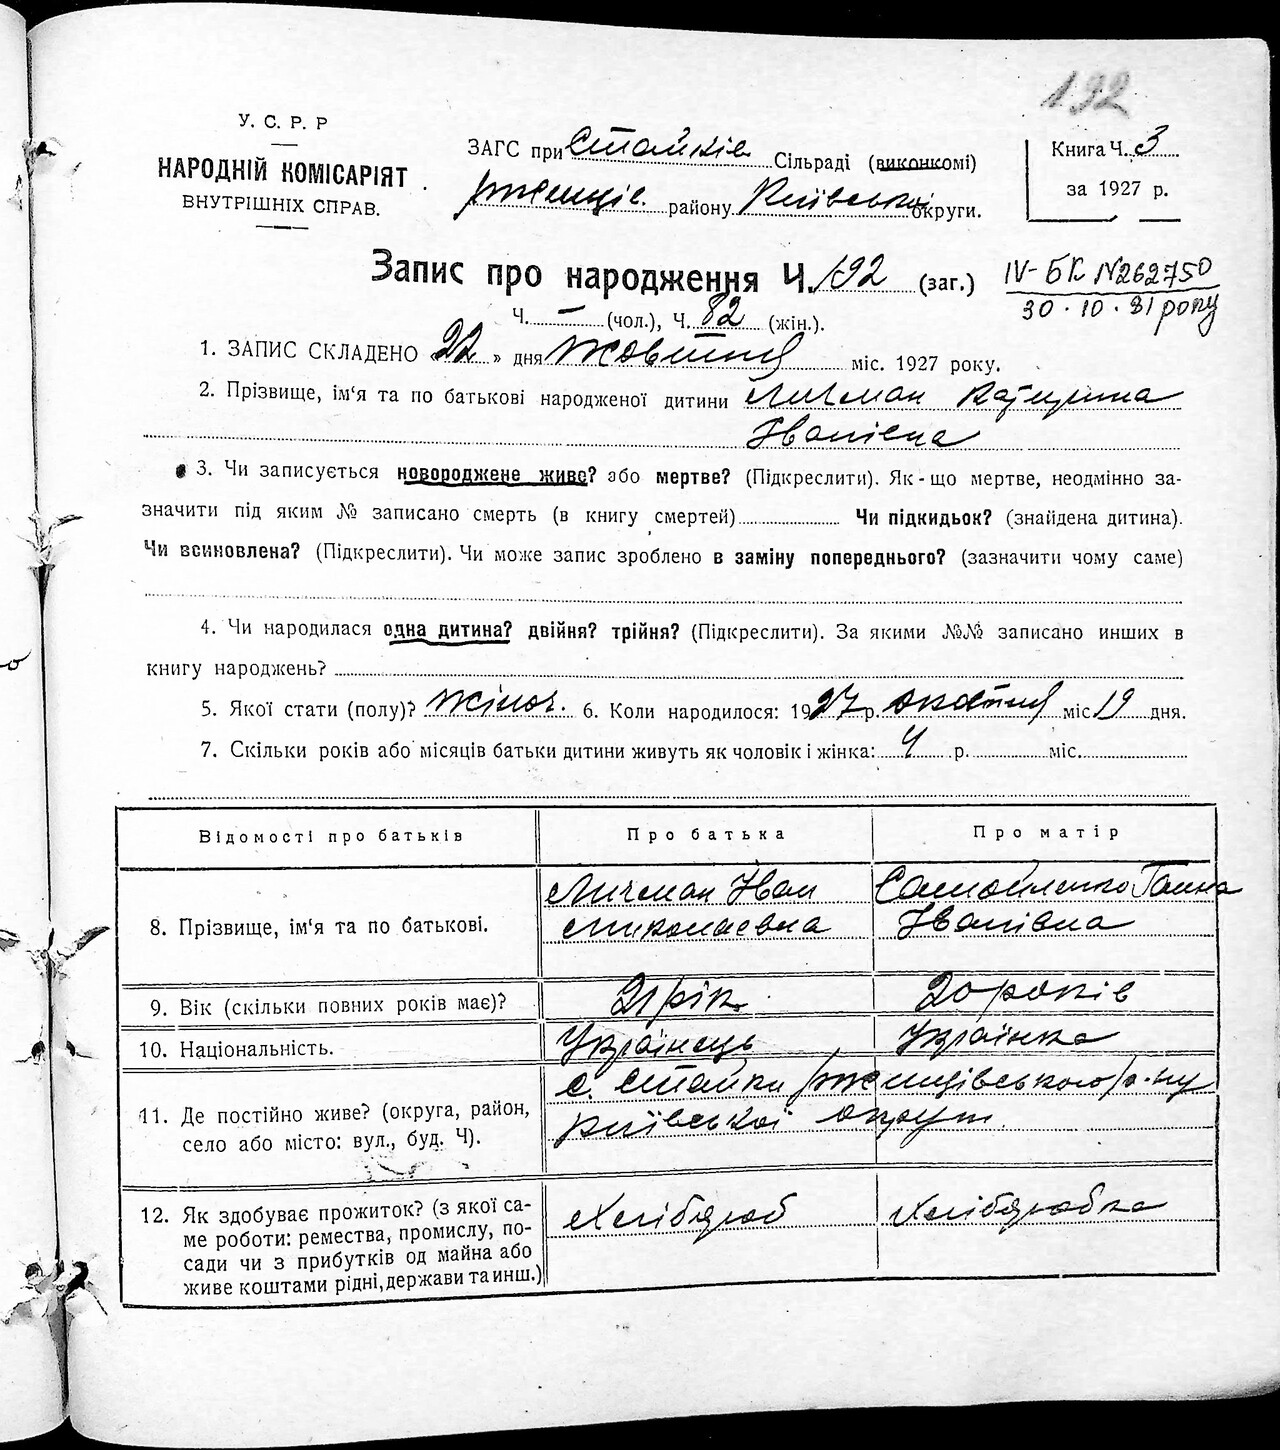 192
У. С. Р. Р
НАРОДНІЙ КОМІСАРІЯТ
ВНУТРІШНІХ СПРАВ.
ЗАГС при Стайків Сільраді (виконкомі)
ржищів. району Київської округи.
Книга Ч. 3
за 1927 р.
Запис про народження Ч. 192 (заг.)
IV-БК N262750
30.10.81 року
Ч. — (чол.), Ч. 82 (жін.).
1. ЗАПИС СКЛАДЕНО «22» дня Жовтня міс. 1927 року.
2. Прізвище, ім'я та по батькові народженої дитини Личман Катерина
Іванівна
3. Чи записується новороджене живе? або мертве? (Підкреслити). Як-що мертве, неодмінно за-
значити під яким № записано смерть (в книгу смертей) Чи підкидьок? (знайдена дитина).
Чи всиновлена? (Підкреслити). Чи може запис зроблено в заміну попереднього? (зазначити чому саме)
4. Чи народилася одна дитина? двійня? трійня? (Підкреслити). За якими №№ записано инших в
книгу народжень?
5. Якої стати (полу)? жіноч. 6. Коли народилося: 1927 р. жовтня міс 19 дня.
7. Скільки років або місяців батьки дитини живуть як чоловік і жінка: 4 р. міс.
Відомості про батьків Про батька Про матір
8. Прізвище, ім'я та по батькові.
Личман Іван
Миколаевна
Самойленко Ганна
Іванівна
9. Вік (скільки повних років має)? 21 рік 20 років
10. Національність. Українець Українка
11. Де постійно живе? (округа, район,
село або місто: вул., буд. Ч).
с. Стайки ржищівського р-ну
Київської округи
12. Як здобуває прожиток? (з якої са-
ме роботи: ремества, промислу, по-
сади чи з прибутків од майна або
живе коштами рідні, держави та инш.)
Хлібороб
Хліборобка